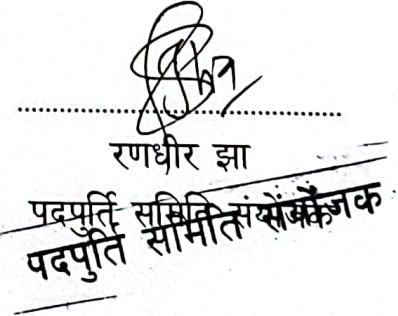 रणधीर झा
पदपुर्ति समिति संयोजक
पदपुर्ति समिति संयोजक